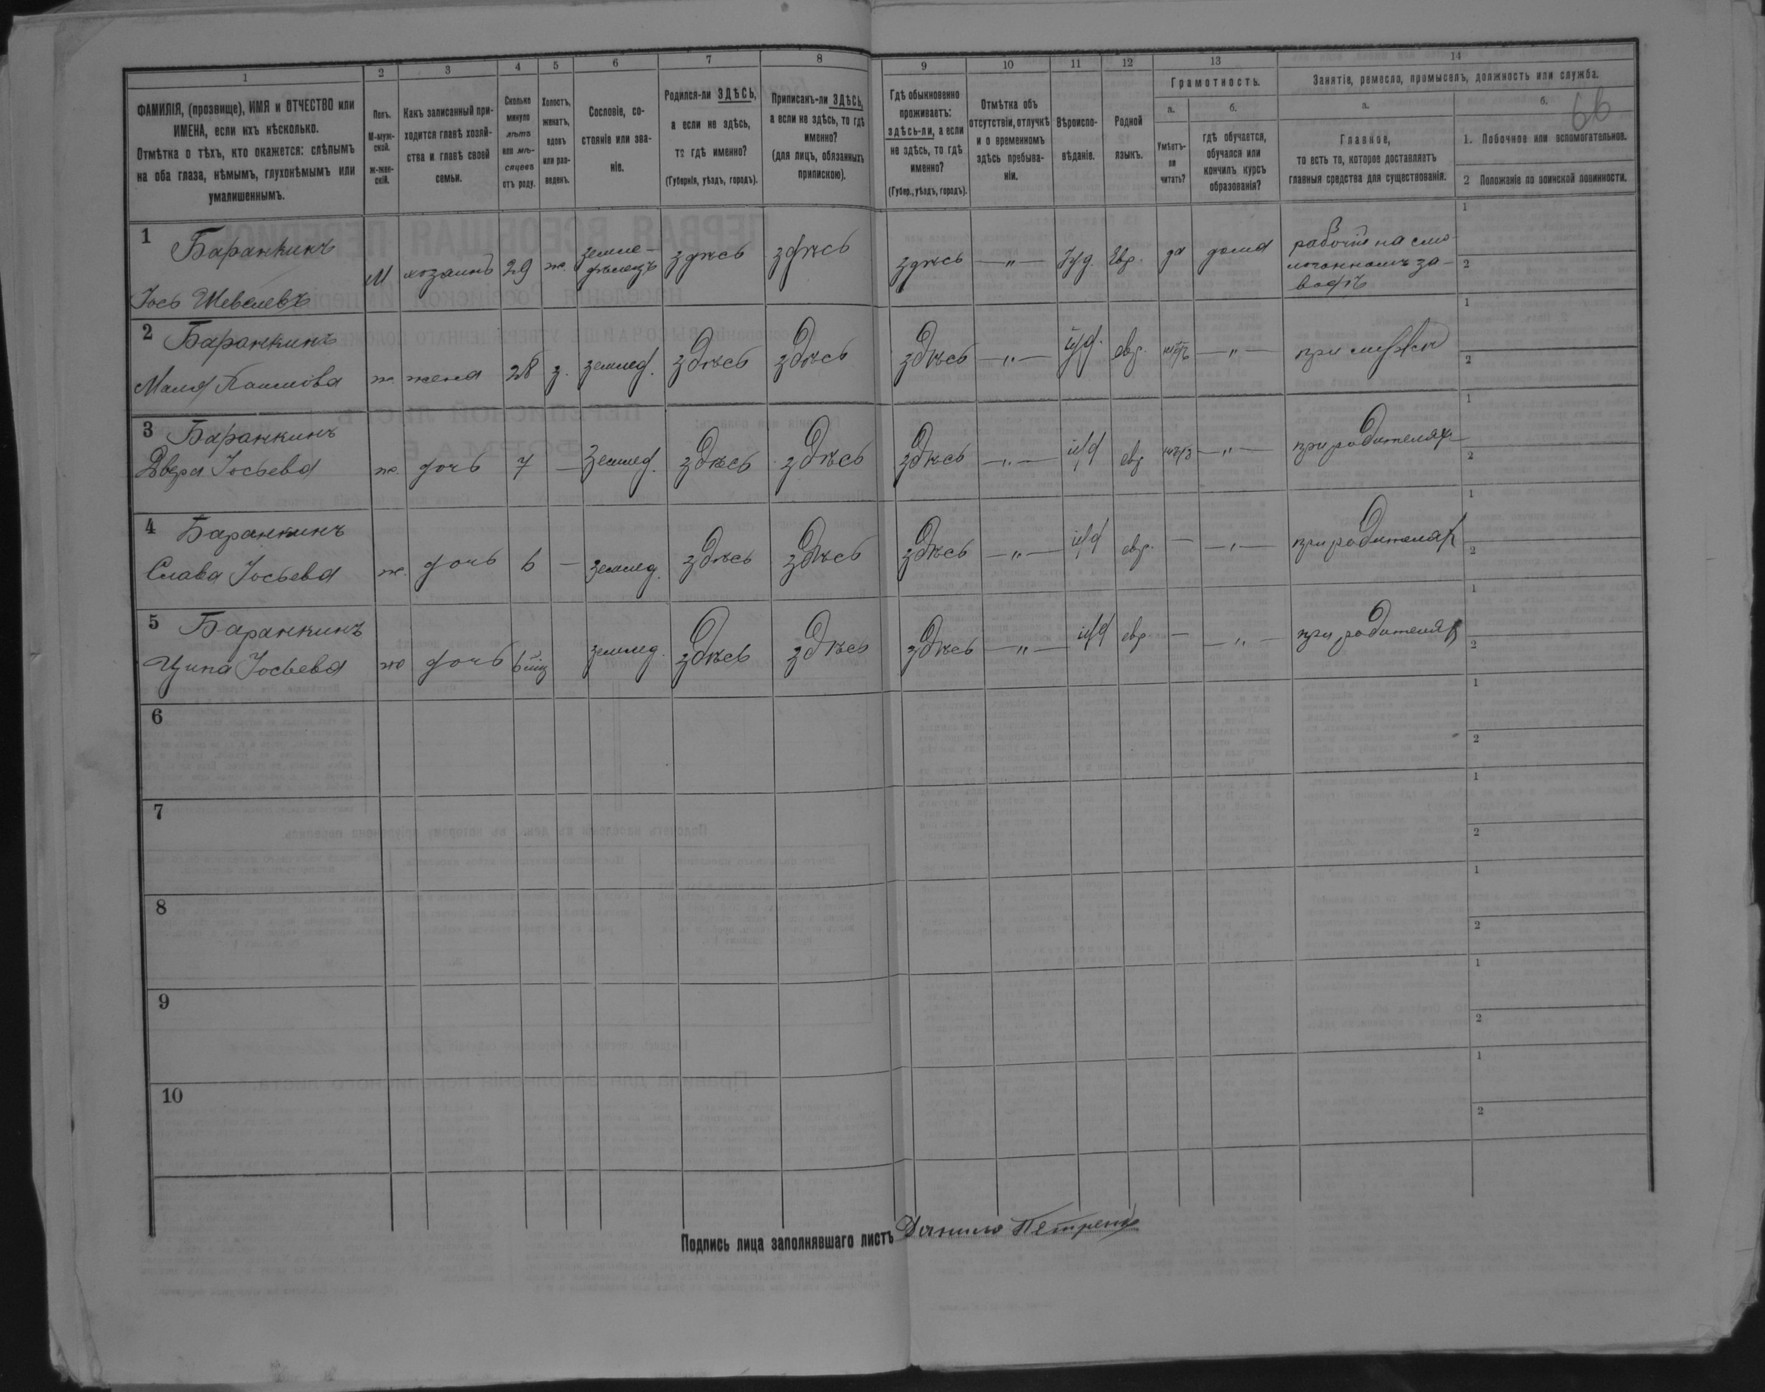 66
1 2 3 4 5 6 7 8 9 10 11 12 13 14
ФАМИЛІЯ, (прозвище), ИМЯ и ОТЧЕСТВО или
ИМЕНА, если ихъ нѣсколько.
Отмѣтка о тѣхъ, кто окажется: слѣпымъ
на оба глаза, нѣмымъ, глухонѣмымъ или
умалишеннымъ.
Полъ.
М-муж-
ской.
ж-жен-
скій.
Какъ записанный при-
ходится главѣ хозяй-
ства и главѣ своей
семьи.
Сколько
минуло
лѣтъ
или мѣ-
сяцевъ
отъ роду.
Холостъ,
женатъ,
вдовъ
или раз-
веденъ.
Сословіе, со-
стояніе или зва-
ніе.
Родился-ли ЗДѢСЬ,
а если не здѣсь,
то гдѣ именно?
(Губернія, уѣздъ, городъ).
Приписанъ-ли ЗДѢСЬ,
а если не здѣсь, то гдѣ
именно?
(для лицъ, обязанныхъ
припискою).
Гдѣ обыкновенно
проживаетъ:
здѣсь-ли, а если
не здѣсь, то гдѣ
именно?
(Губер., уѣздъ, городъ).
Отмѣтка объ
отсутствіи, отлучкѣ
и о временномъ
здѣсь пребыва-
ніи.
Вѣроиспо-
вѣданіе.
Родной
языкъ.
Грамотность.
а. б.
Умѣетъ-
ли
читать?
гдѣ обучается,
обучался или
кончилъ курсъ
образованія?
Занятіе, ремесло, промыселъ, должность или служба.
а. б.
Главное,
то есть то, которое доставляетъ
главныя средства для существованія.
1. Побочное или вспомогательное.
2 Положеніе по воинской повинности.
1 Баранкинъ
Іось Шевелевъ
М хозяинъ 29 ж. земле-
дѣлецъ
здѣсь здѣсь здѣсь —„— Іуд. Евр. да дома
рабочій на смо-
лочномъ за-
водѣ
1
2
2 Баранкинъ
Маля
ж. жена 28 з. землед. здѣсь здѣсь здѣсь —„— іуд. евр. нѣтъ —„— при мужѣ
1
2
3 Баранкинъ
Двера Іосьева
ж. дочь 7 — землед. здѣсь здѣсь здѣсь —„— іуд евр. нѣтъ —„— при родителях
1
2
4 Баранкинъ
Слава Іосьева
ж. дочь 6 — землед. здѣсь здѣсь здѣсь —„— іуд евр. — —„— при родителях
1
2
5 Баранкинъ
Ципа Іосьева
ж дочь 6 міц землед. здѣсь здѣсь здѣсь —„— іуд евр — —„— при родителях
1
2
6
1
2
7
1
2
8
1
2
9
1
2
10
1
2
Подпись лица заполнявшаго листъ Данило Петренко